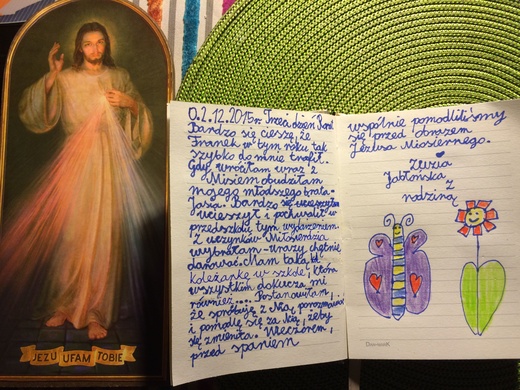 JEZU UFAM TOBIE
02.12.2015r. Trzeci dzień
Bardzo się cieszę, że
Franek w tym roku tak
szybko do mnie trafił.
Gdy wróciłam wraz z
Misiem obudziłam
mojego młodszego brata-
Jasia. Bardzo się
ucieszył i pochwalił w
przedszkolu tym wydarzeniem.
Z uczynków Miłosierdzia
wybrałam - urazy chętnie
darować. Mam taką
koleżankę w szkole, która
wszystkim dokucza, mi
również.... Postanowiłam,
że spróbuję z Nią porozmawiać
i pomodlę się za Nią, żeby
się zmieniła. Wieczorem,
przed spaniem
wspólnie pomodliliśmy
się przed obrazem
Jezusa Miosiernego.
Zuzia
Jabłońska
z
rodziną